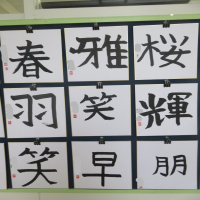 春 雅 桜
羽 笑 輝
笑 早 朋